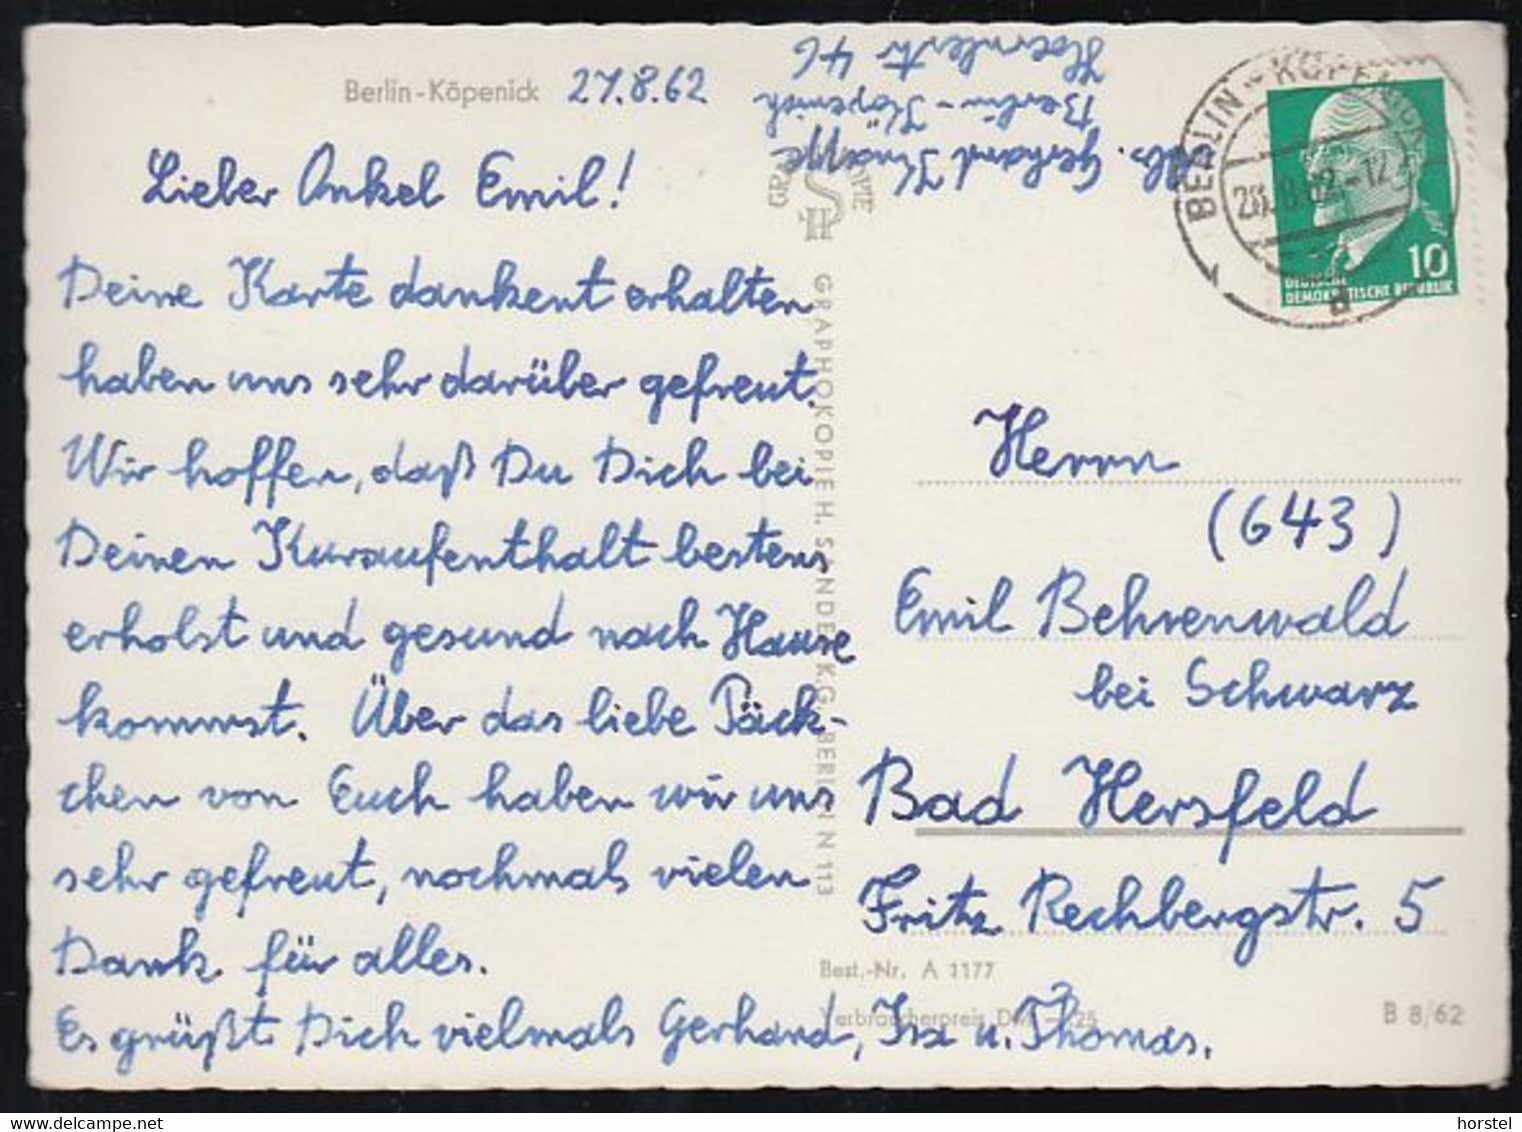 Berlin-Köpenick 27.8.62
Lieber Onkel Emil!
Deine Karte dankent erhalten
haben uns sehr darüber gefreut.
Wir hoffen, daß Du Dich bei
Deinen Kuraufenthalt bestens
erholst und gesund nach Hause
kommst. Über das liebe Päck-
chen von Euch haben wir uns
sehr gefreut, nochmals vielen
Dank für alles.
Es grüßt Dich vielmals Gerhard, Isa u. Thomas.
Abs. Gerhard Knappe
Berlin-Köpenick
46
GRAPHOKOPIE H. SANDER KG. BERLIN N 113
SH
BERLIN-KÖPENICK
28.8.62.-12
a
10
DEUTSCHE
DEMOKRATISCHE REPUBLIK
Herrn
(643)
Emil Behrenwald
bei Schwarz
Bad Hersfeld
Fritz Rechbergstr. 5
Best.-Nr. A 1177
Verbraucherpreis DM 25
B 8/62
horstel